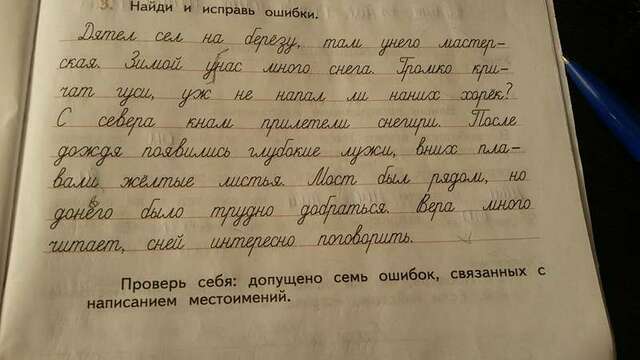 3. Найди и исправь ошибки.
Дятел сел на берёзу, там унего мастер-
ская. Зимой унас много снега. Громко кри-
чат гуси, уж не напал ли наних хорёк?
С севера кнам прилетели снегири. После
дождя появились глубокие лужи, вних пла-
вали жёлтые листья. Мост был рядом, но
донего было трудно добраться. Вера много
читает, сней интересно поговорить.
Проверь себя: допущено семь ошибок, связанных с
написанием местоимений.